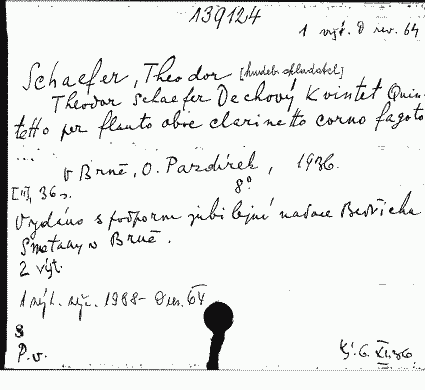 139124
1 výt. D rev. 64
Schaefer, Theodor [hudeb. skladatel]
Theodor Schaefer Dechový Kvintet Quin-
tetto per flauto oboe clarinetto corno fagoto
...
V Brně, O. Pazdírek, 1936.
8°
36 s.
Vydáno s podporou jubilejní nadace Bedřicha
Smetany v Brně.
2 výt.
1 výt. vyř. 1988 - D rev. 64
8
P. v.
XI. 36.